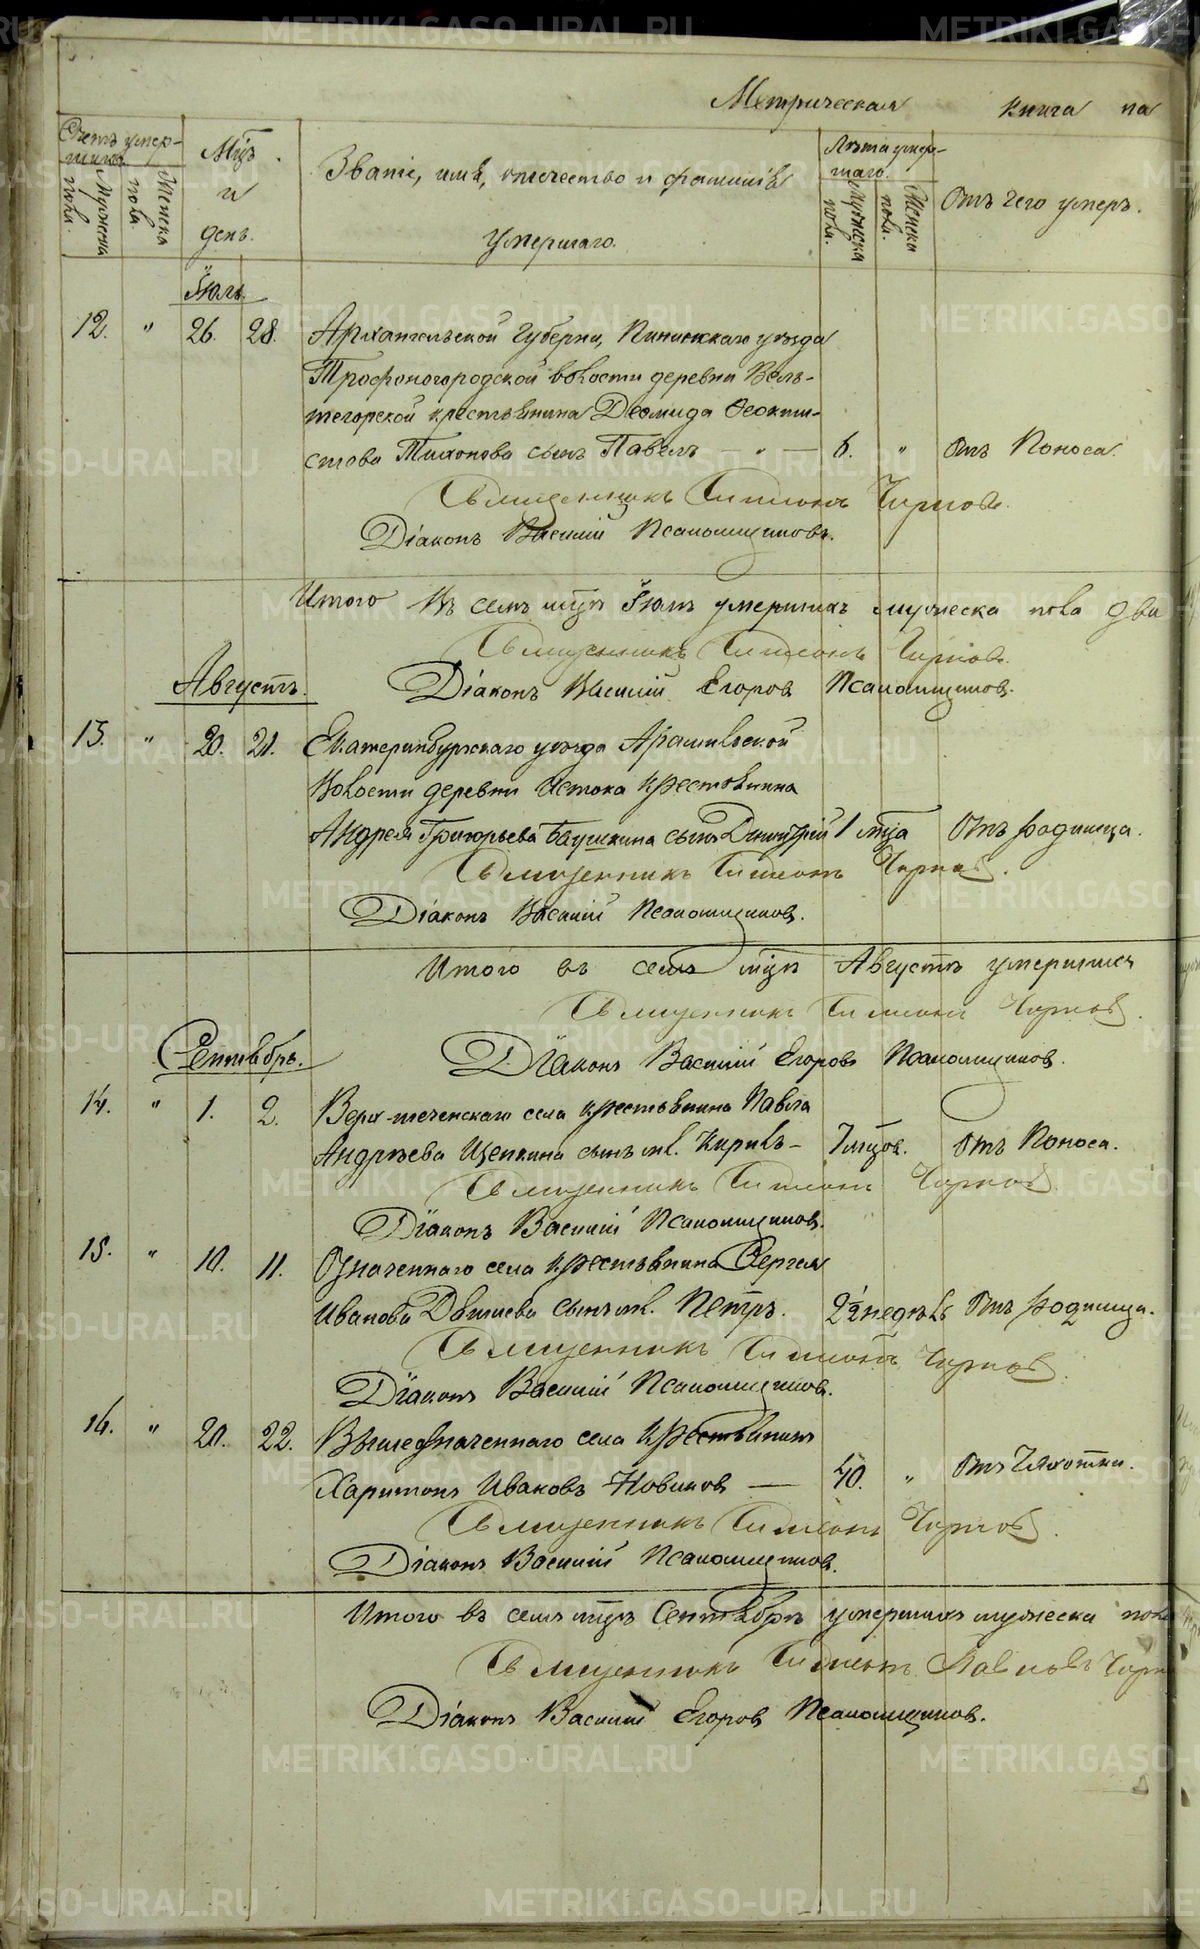 Метрическая книга на
Счетъ умер-
шихъ.
Мужеска пола.
Женска пола.
Мцъ и день.
Званіе, имя, отчество и фамилія
умершаго.
Лѣта умер-
шаго.
Мужеска пола.
Женска пола.
Отъ чего умеръ.
Іюль.
12. " 26. 28. Архангельской Губерніи, Пинежскаго уѣзда
Трофоногородской волости деревни Вель-
тегорской крестьянина Деомида Ѳеокти-
стова Тихонова сынъ Павелъ — " — 6. " Отъ Поноса.
Священникъ Симеонъ Чирковъ.
Діаконъ Василій Псаломщиковъ.
Итого въ семъ мцѣ Іюлѣ умершихъ мужеска пола два
Священникъ Симеонъ Чирковъ.
Августъ. Діаконъ Василій Егоровъ Псаломщиковъ.
13. " 20. 21. Екатеринбургскаго уѣзда Арамильской
Волости деревни Истока крестьянина
Андрея Григорьева Баушкина сынъ Димитрій 1 мца Отъ родимца.
Священникъ Симеонъ Чирковъ.
Діаконъ Василій Псаломщиковъ.
Итого въ семъ мцѣ Августѣ умершихъ
Священникъ Симеонъ Чирковъ.
Сентябрь. Діаконъ Василій Егоровъ Псаломщиковъ.
14. " 1. 2. Верх-теченскаго села крестьянина Павла
Андреева Щепкина сынъ мл. Кирилъ – 7 мцов. Отъ Поноса.
Священникъ Симеонъ Чирковъ.
Діаконъ Василій Псаломщиковъ.
15. " 10. 11. Означеннаго села крестьянина Сергея
Иванова сынъ мл. Петръ. 2½ недѣль Отъ родимца.
Священникъ Симеонъ Чирковъ.
Діаконъ Василій Псаломщиковъ.
16. " 20. 22. Вышеозначеннаго села Крестьянинъ
Харитонъ Ивановъ Новиковъ — 40. " Отъ Чахотки.
Священникъ Симеонъ Чирковъ.
Діаконъ Василій Псаломщиковъ.
Итого въ семъ мцѣ Сентябрѣ умершихъ мужеска пола
Священникъ Симеонъ Павловъ Чирк
Діаконъ Василій Егоровъ Псаломщиковъ.
METRIKI.GASO-URAL.RU